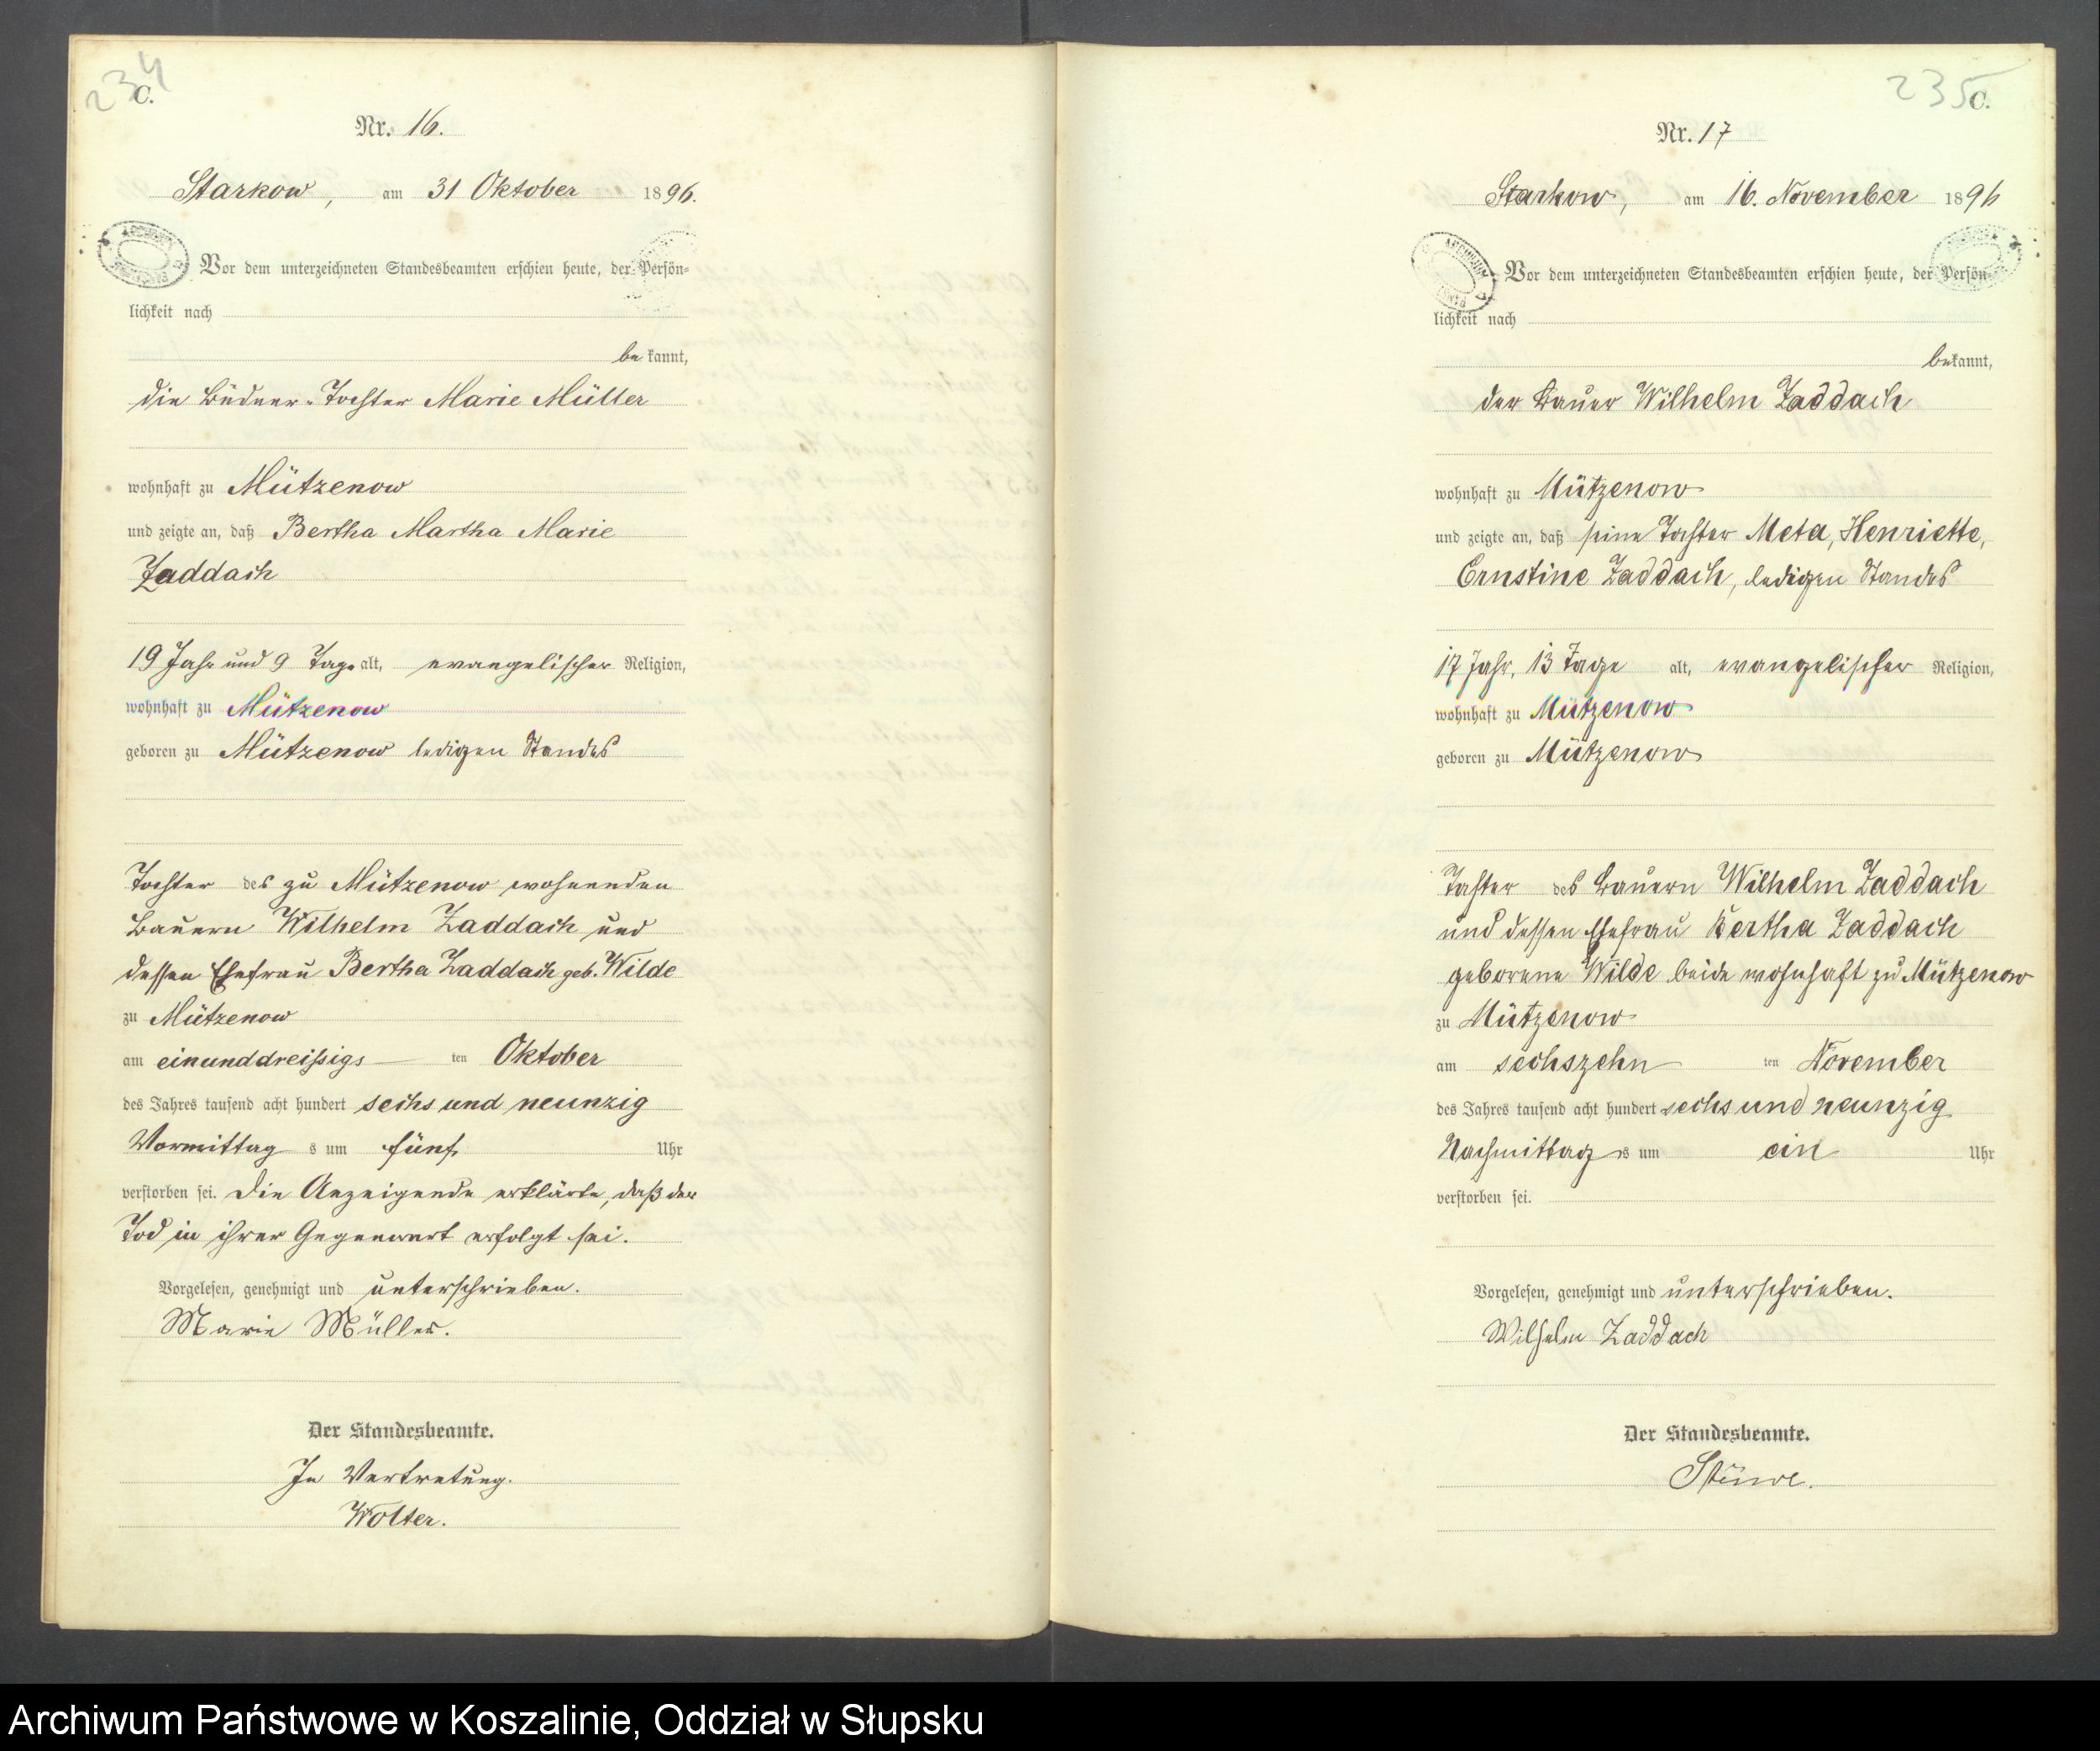 234
C.
Nr. 16.
Starkow, am 31 Oktober 1896.
Vor dem unterzeichneten Standesbeamten erschien heute, der Persön-
lichkeit nach
be kannt,
die Büdner-Tochter Marie Müller
wohnhaft zu Mützenow
und zeigte an, daß Bertha Martha Marie
Zaddach
19 Jahr und 9 Tage alt, evangelischer Religion,
wohnhaft zu Mützenow
geboren zu Mützenow ledigen Standes
Tochter des zu Mützenow wohnenden
Bauern Wilhelm Zaddach und
dessen Ehefrau Bertha Zaddach geb. Wilde
zu Mützenow
am einunddreißigs ten Oktober
des Jahres tausend acht hundert sechs und neunzig
Vormittag s um fünf Uhr
verstorben sei. Die Anzeigende erklärte, daß der
Tod in ihrer Gegenwart erfolgt sei.
Vorgelesen, genehmigt und unterschrieben.
Marie Müller.
Der Standesbeamte.
In Vertretung.
Wolter.
235
C.
Nr. 17
Starkow, am 16. November 1896
Vor dem unterzeichneten Standesbeamten erschien heute, der Persön-
lichkeit nach
bekannt,
der Bauer Wilhelm Zaddach
wohnhaft zu Mützenow
und zeigte an, daß seine Tochter Meta, Henriette,
Ernstine Zaddach, ledigen Standes
17 Jahr, 13 Tage alt, evangelischer Religion,
wohnhaft zu Mützenow
geboren zu Mützenow
Tochter des Bauern Wilhelm Zaddach
und dessen Ehefrau Bertha Zaddach
geborene Wilde beide wohnhaft zu Mützenow
zu Mützenow
am sechszehn ten November
des Jahres tausend acht hundert sechs und neunzig
Nachmittag s um ein Uhr
verstorben sei.
Vorgelesen, genehmigt und unterschrieben.
Wilhelm Zaddach
Der Standesbeamte.
Stüwe.
Archiwum Państwowe w Koszalinie, Oddział w Słupsku